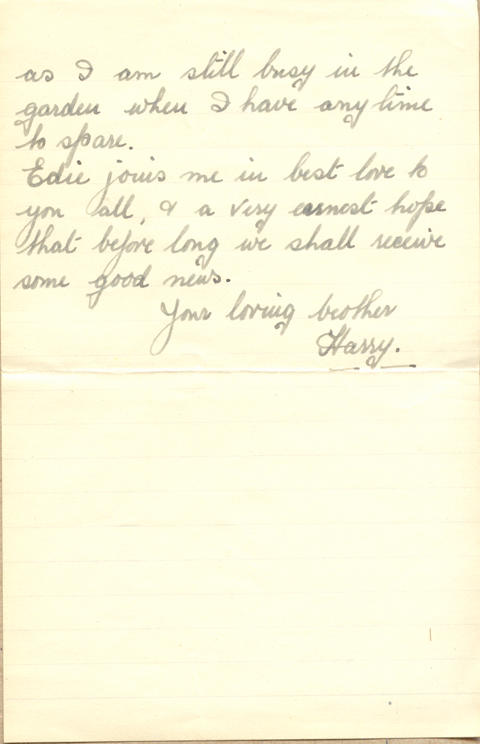 as I am still busy in the
garden when I have any time
to spare.
Edie joins me in best love to
you all, & a very earnest hope
that before long we shall receive
some good news.
Your loving brother
Harry.